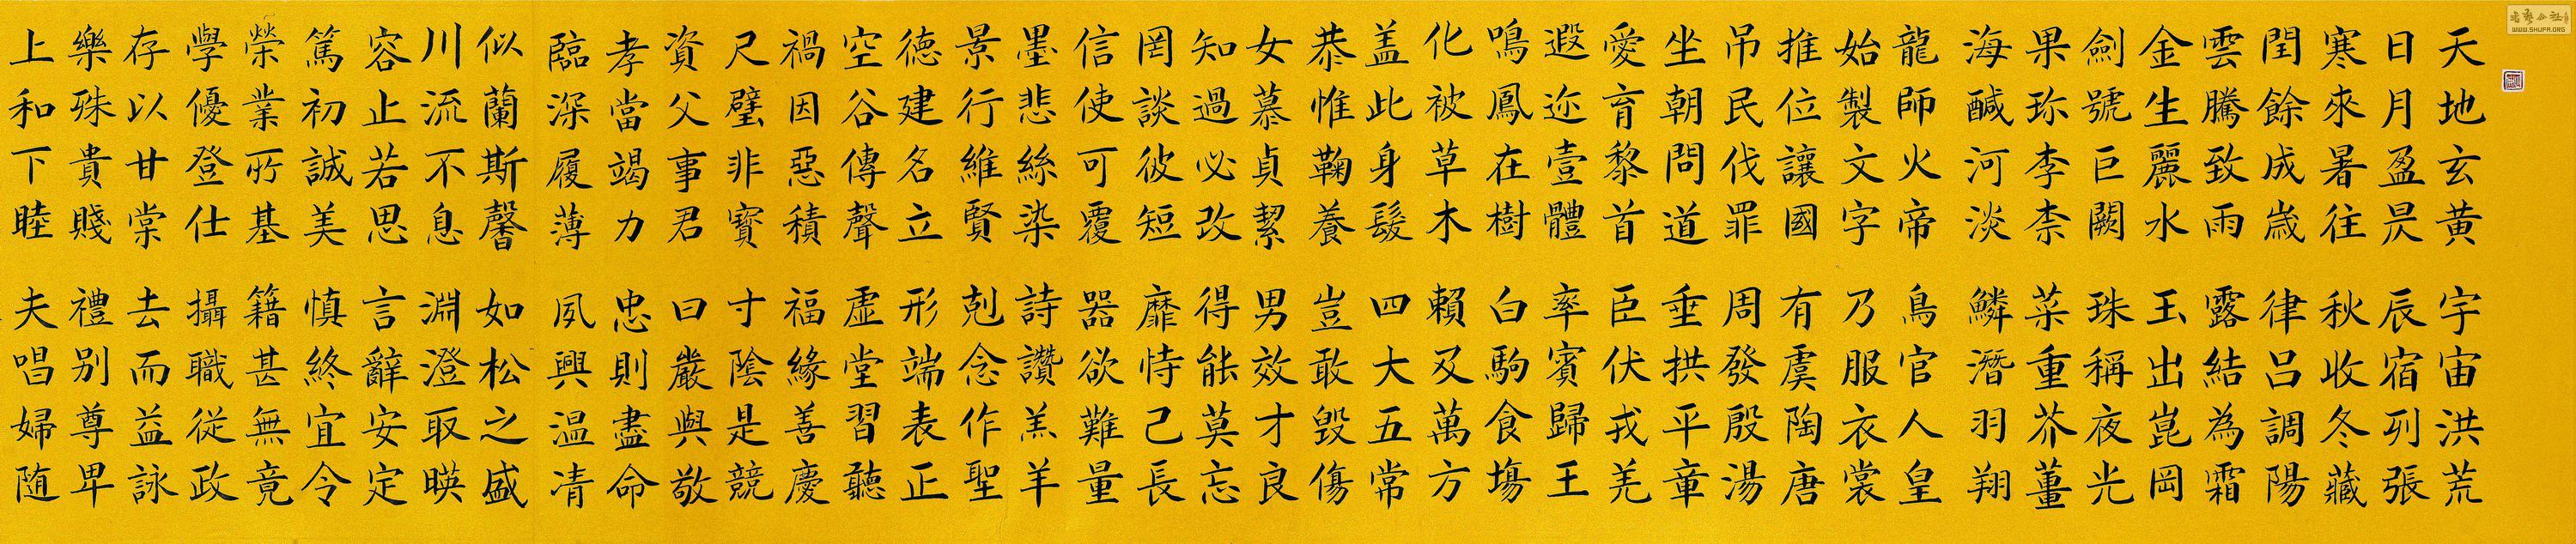 天地玄黄宇宙洪荒
日月盈昃辰宿列張
寒來暑往秋收冬藏
閏餘成歳律吕調陽
雲騰致雨露結為霜
金生麗水玉出崑岡
劍號巨闕珠稱夜光
果珎李柰菜重芥薑
海醎河淡鱗潛羽翔
龍師火帝鳥官人皇
始製文字乃服衣裳
推位讓國有虞陶唐
吊民伐罪周發殷湯
坐朝問道垂拱平章
愛育黎首臣伏戎羌
遐迩壹體率賓歸王
鳴鳳在樹白駒食塲
化被草木賴及萬方
盖此身髮四大五常
恭惟鞠養豈敢毀傷
女慕貞絜男效才良
知過必改得能莫忘
罔談彼短靡恃己長
信使可覆器欲難量
墨悲絲染詩讚羔羊
景行維賢剋念作聖
德建名立形端表正
空谷傳聲虛堂習聽
禍因惡積福緣善慶
尺璧非寶寸陰是競
資父事君曰嚴與敬
孝當竭力忠則盡命
臨深履薄夙興温凊
似蘭斯馨如松之盛
川流不息淵澄取暎
容止若思言辭安定
篤初誠美慎終宜令
榮業所基籍甚無竟
學優登仕攝職從政
存以甘棠去而益詠
樂殊貴賤禮别尊卑
上和下睦夫唱婦随
WWW.SHUFA.ORG